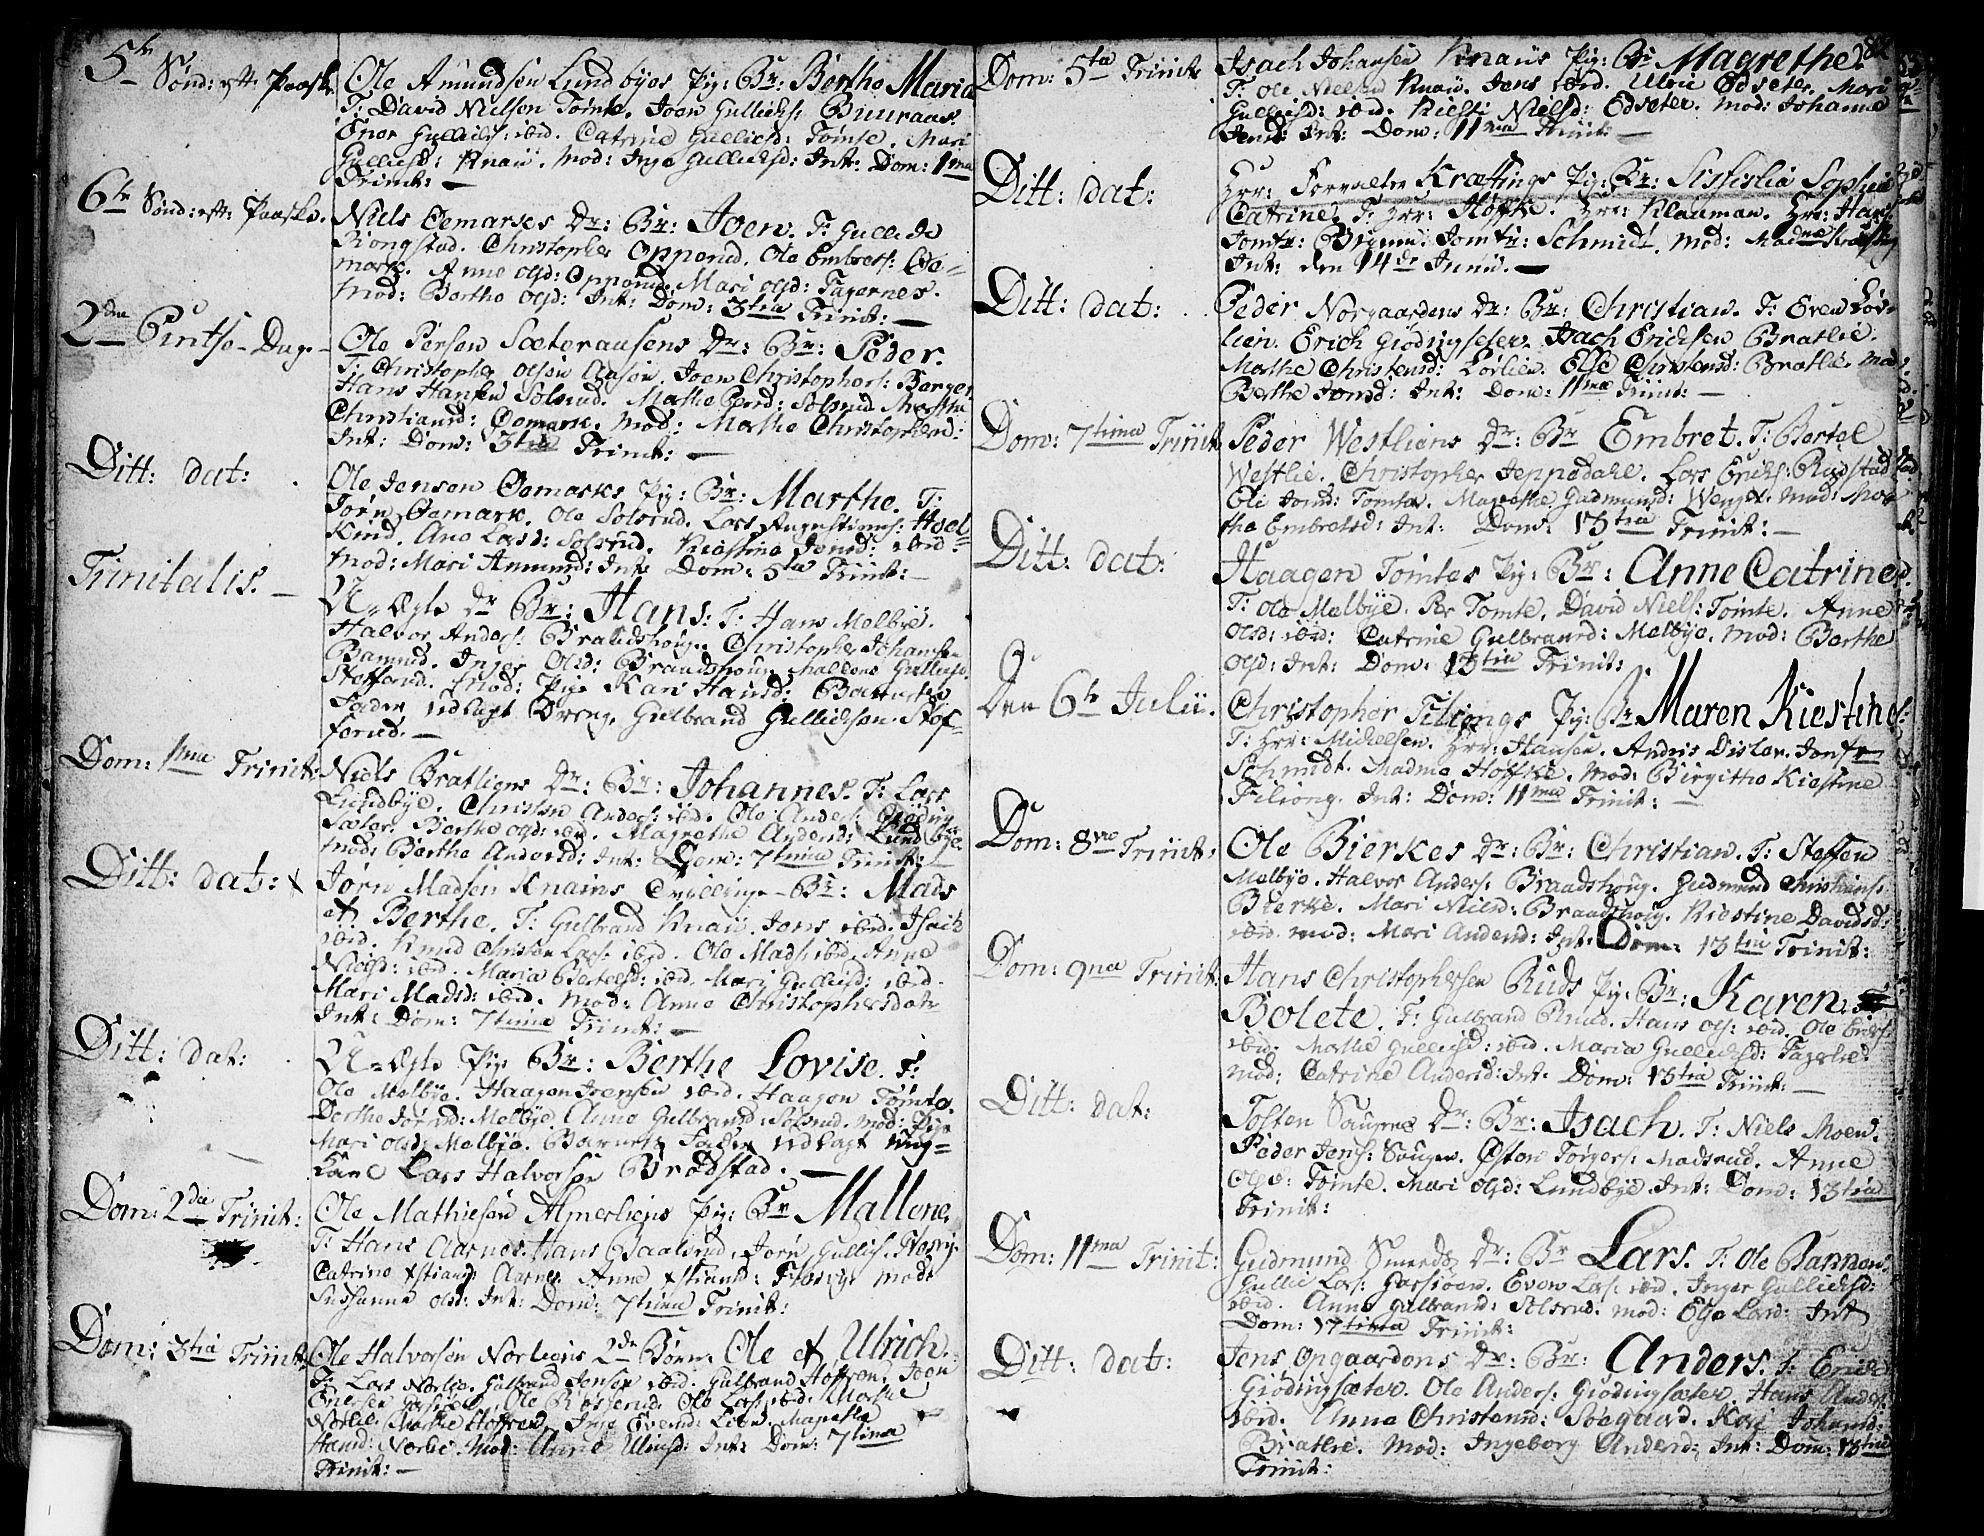 5te Sønd: eft: Paaske.
Ole Amundsen Lundbyes Pg: Br: Berthe Maria
T: David Nielsen Tomte, Joen Gullichs: Buuraas.
Enor Gullichs: ibid. Catrine Gulliesd: Tomte. Mari
Gulliesd: Knaii. Mod: Inge Gullichsd: Int: Dom: 1ma
Trinit: —
6te Sønd: eft: Paaske.
Niels Oemarkes Dr: Br: Joen. T: Gullich
Kiongstad. Christopher Opperud. Ole Embrets: Oe=
mark. Anne Olsd: Opperud. Mari Olsd: Fagernes.
Mod: Berthe Olsd: Int: Dom: 3tia Trinit: —
2den Pintse-Dag —
Ole Persen Sæteraasens Dr: Br: Peder.
T: Christopher Olsen Aasen, Joen Christophers: Berger
Hans Hansen Solsrud. Mathe Persd: Solsrud Marthe
Christiansd: Oemark. Mod: Marthe Christophersd:
Int: Dom: 3tia Trinit: —
Ditt: dat: .
Ole Jensen Oemarkes Pg: Br: Marthe. T:
Jørn Oemark. Ole Solsrud. Lars Augustinus: Hoel=
Kind, Ane Larsd: Solsrud. Kiestine Jensd: ibid:
Mod: Mari Amundsd: Int: Dom: 5ta Trinit: —
Trinitatis. —
U-Ægte Dr Br: Hans: T: Hans Melbye.
Halvor Anders: Braadshoug. Christopher Johansen
Bamrud. Inger Olsd: Braadshoug Mallene Gulliesd.
Stefferud. Mod: Pige Kari Hansd: Barnets
Fader udlagt Dreng, Gulbrand Gullichsen Stef=
ferud. —
Dom: 1ma Trinit:
Niels Bratliens Dr: Br: Johannes. T: Lars
Lundbye. Christen Anders: ibid. Ole Anders: Giøding
Sæter. Berthe Olsd: ibid. Magrethe Andersd: Lundbye.
Mod: Berthe Andersd: Int: Dom: 7tima Trinit: —
Ditt: dat:
Jørn Madsen Knaiis Tvillinge-Br: Mads
et Berthe. T: Gulbrand Knaii, Jens ibid. Isach
ibid. Knud Christen Lars: ibid. Ole Mads: ibid. Anne
Nielsd: ibid. Maria Bertelsd: ibid. Mari Gulliesd: ibid.
Mari Madsd: ibid. Mod: Anne Christophersdatr
Int: Dom: 7tima Trinit: —
Ditt: dat: .
U-Ægte Pg Br: Berthe Lovise. T:
Ole Melbye. Haagen Iversen ibid. Haagen Tomte.
Berthe Jørnsd: Melbye. Anne Gulbransd: Solsrud. Mod: Pige
Mari Olsd: Melbye. Barnets Fader udlagt Ung=
Karl Lars Halvorsen Brodstad. —
Dom: 2da Trinit:
Ole Mathiesen Almerliens Pg: Br Mallene.
T: Hans Aarnes. Hans Baalsrud, Jørn Gullis: Næsvig.
Catrine Xstiansd: Aarnes. Anne Xstiansd: Næsvig. Mod:
Susanne Olsd: Int: Dom: 7tima Trinit:
Dom: 3tia Trinit:
Ole Halvorsen Norliens 2de Børn: Ole et Ulrich.
T: Lars Norlie. Gulbrand Jensen ibid. Gulbrand Hoffren. Joen
Erichsen Gasiøen. Ole Røsjerud. Ole Lars: ibid. Marthe
Norlie. Mathe Hoffren, Inge Evensd: Lien. Magrethe
Hansd: Norlie. Mod: Anne Ulrichsd: Int: Dom: 7tima
Trinit: —
82
Dom: 5ta Trinit:
Isach Johansen Knaiis Pg: Br: Magrethe.
T: Ole Nielsen Knaii. Jens ibid. Ulric Edseter. Mari
Gulliesd: ibid. Kiesti Nielsd: Edseter. Mod: Johanne
Jensd: Int: Dom: 11ma Trinit: —
Ditt: dat:
Hrr: Forvalter Kræftings Pg: Br: Sisislia Sophia
Catrine. T: Hrr: Høffke. Hrr: Klauman. Hrr: Hans
Jomfr: Brynni: Jomfr: Schmidt. Mod: Madme Kræfting
Int: den 14de Junii. —
Ditt: dat: .
Peder Norgaardens Dr: Br: Christian. T: Even Lør=
lien. Erich Giødingseter. Isach Erichsen Bratlie.
Mathe Christensd: Lørlien. Else Christensd: Bratlie. Mod:
Berthe Jonsd: Int: Dom: 11ma Trinit: —
Dom: 7tima Trinit
Peder Westliens Dr: Br Embret. T: Bertel
Westlie. Christopher Jeppedahl. Lars Erichs: Rudstad
Oli Jonsd: Tomte. Magrethe Gudmunsd: Wenger. Mod: Mar
the Embretsd: Int: Dom: 13tia Trinit: —
Ditt: dat:
Haagen Tomtes Pg: Br: Anne Catrine
T: Ole Melbye. Per Tomte. David Niels: Tomte. Anne
Olsd: ibid: Catrine Gulbransd: Melbye. Mod: Berthe
Olsd: Int: Dom: 13tia Trinit:
Den 6te Julii.
Christopher Filiongs Pg: Br Maren Kiestine
T: Hrr: Michelsen. Hrr: Hansen. Andris Disler. Jomfr
Schmidt. Madme Høffke. Mod: Birgithe Kiestine
Filiong. Int: Dom: 11ma Trinit: —
Dom: 8va Trinit:
Ole Bierkes Dr: Br: Christian. T: Steffen
Melbye. Halvor Anders: Braadshoug. Gudmund Christians:
Bierke. Mari Nielsd: Braadshoug. Kiestine Davidsd:
ibid. Mod: Mari Andersd: Int: Dom: 13tia Trinit:
Dom: 9na Trinit:
Hans Christophersen Ruds Pg: Br: Karen
Bolete. T: Gulbrand Ruud. Hans Ols: ibid. Ole Erichs:
ibid. Mathe Gulliesd: ibid. Maria Gullichsd: Fagerlie.
Mod: Catrine Andersd: Int: Dom: 13tia Trinit: —
Ditt: dat:
Tosten Saugens Dr: Br: Isach. T: Niels Moen.
Peder Jens: Saugen. Østen Torgers: Madsrud. Anne
Olsd: Tomte. Mari Olsd: Lundbye. Int: Dom: 13tia
Trinit:
Dom: 11ma Trinit:
Gudmund Smerds Dr: Br Lars. T: Ole Bamrud.
Gullic Lars: Garsioen. Even Lars: ibid. Inger Gullichsd:
ibid. Anne Gulbransd: Solsrud. Mod: Else Larsd: Int
Dom: 17tima Trinit:
Ditt: dat:
Jens Opgaardens Dr: Br: Anders. T: Erich
Giødingsæter. Ole Anders: Giødingsæter. Hans Anders:
ibid. Anne Christensd: Søegaard. Kari Johansd:
Bratlie. Mod: Ingeborg Andersd: Int: Dom: 13tia
Trinit: